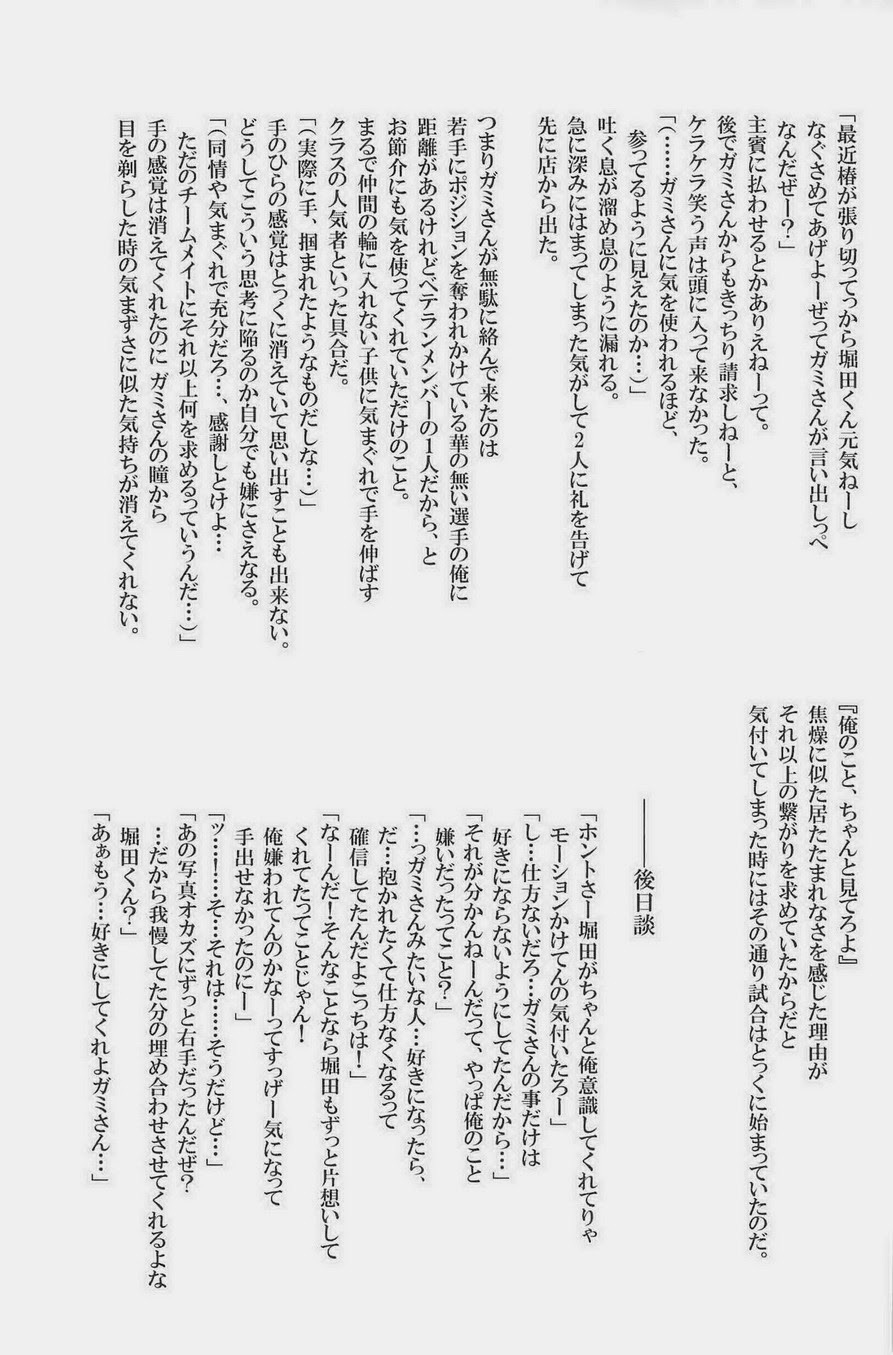 「最近椿が張り切ってっから堀田くん元気ねーし
なぐさめてあげよーぜってガミさんが言い出しっぺ
なんだぜー？」
主賓に払わせるとかありえねーって。
後でガミさんからもきっちり請求しねーと、
ケラケラ笑う声は頭に入って来なかった。
「（……ガミさんに気を使われるほど、
参ってるように見えたのか…）」
吐く息が溜め息のように漏れる。
急に深みにはまってしまった気がして2人に礼を告げて
先に店から出た。
つまりガミさんが無駄に絡んで来たのは
若手にポジションを奪われかけている華の無い選手の俺に
距離があるけれどベテランメンバーの1人だから、と
お節介にも気を使ってくれていただけのこと。
まるで仲間の輪に入れない子供に気まぐれで手を伸ばす
クラスの人気者といった具合だ。
「（実際に手、掴まれたようなものだしな…）」
手のひらの感覚はとっくに消えていて思い出すことも出来ない。
どうしてこういう思考に陥るのか自分でも嫌にさえなる。
「（同情や気まぐれで充分だろ…、感謝しとけよ…
ただのチームメイトにそれ以上何を求めるっていうんだ…）」
手の感覚は消えてくれたのに ガミさんの瞳から
目を剃らした時の気まずさに似た気持ちが消えてくれない。
『俺のこと、ちゃんと見てろよ』
焦燥に似た居たたまれなさを感じた理由が
それ以上の繋がりを求めていたからだと
気付いてしまった時にはその通り試合はとっくに始まっていたのだ。
―――後日談
「ホントさー堀田がちゃんと俺意識してくれてりゃ
モーションかけてんの気付いたろー」
「し…仕方ないだろ…ガミさんの事だけは
好きにならないようにしてたんだから…」
「それが分かんねーんだって、やっぱ俺のこと
嫌いだったってこと？」
「…っガミさんみたいな人…好きになったら、
だ…抱かれたくて仕方なくなるって
確信してたんだよこっちは！」
「なーんだ！そんなことなら堀田もずっと片想いして
くれてたってことじゃん！
俺嫌われてんのかなーってすっげー気になって
手出せなかったのにー」
「ッ…！…そ…それは……そうだけど…」
「あの写真オカズにずっと右手だったんだぜ？
…だから我慢してた分の埋め合わせさせてくれるよな
堀田くん？」
「あぁもう…好きにしてくれよガミさん…」